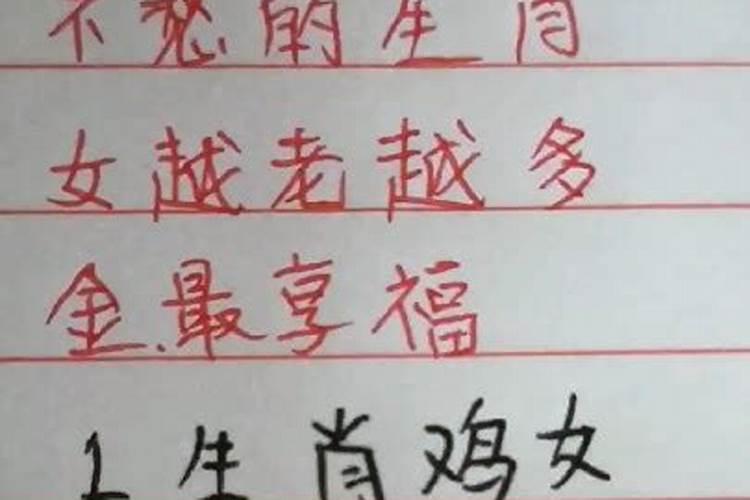 不愁的生肖
女越老越多
金.最享福
1生肖鸡女